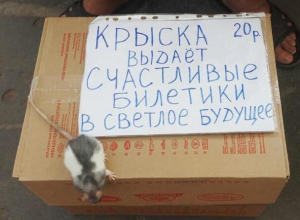 КРЫСКА 20р.
ВЫДАЁТ
СЧАСТЛИВЫЕ
БИЛЕТИКИ
В СВЕТЛОЕ БУДУЩЕЕ